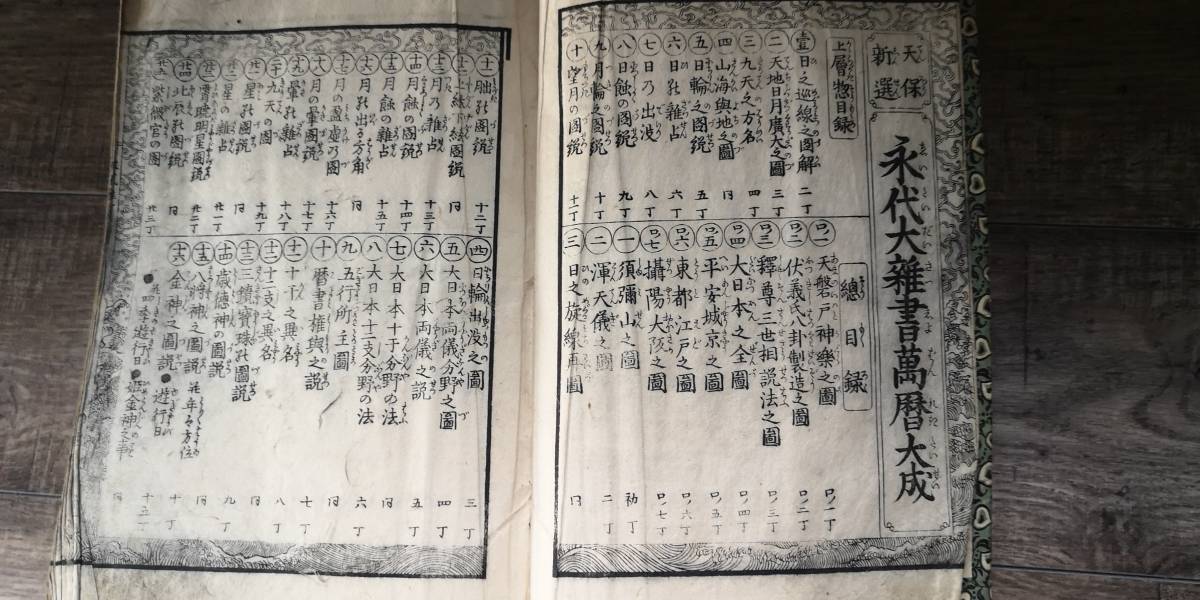 天保
新選
永代大雜書萬暦大成
上層惣目録
壹 日之巡線之圖解 二丁
二 天地日月廣大之圖 三丁
三 九天之方名 四丁
四 山海與地之圖 同
五 日輪之圖説 五丁
六 日孔雜占 六丁
七 日乃出没 八丁
八 日蝕の圖説 九丁
九 月輪之圖説 十丁
十 望月の圖説 十一丁
總目録
口ノ一 天磐戸神樂之圖 口ノ一丁
口ノ二 伏羲氏八卦製造之圖 口ノ二丁
口ノ三 釋尊三世相説法之圖 口ノ三丁
口ノ四 大日本之全圖 口ノ四丁
口ノ五 平安城京之圖 口ノ五丁
口ノ六 東都江戸之圖 口ノ六丁
口ノ七 攝陽大阪之圖 口ノ七丁
一 須彌山之圖 初丁
二 渾天儀之圖 二丁
三 日之旋線再圖 同
十一 朏孔圖説 十二丁
十二 上絃下絃圖説 同
十三 月乃雜占 十三丁
十四 月蝕の圖説 十四丁
十五 月蝕の雜占 十五丁
十六 月孔出る方角 同
十七 月の盈虚乃圖 十六丁
十八 月の暈圖説 十七丁
十九 暈孔雜占 十八丁
二十 九天の圖 十九丁
廿一 星孔圖説 同
廿二 星の雜占 廿一丁
廿三 明星圖説 廿二丁
廿四 北辰孔圖説 同
廿五 紫微宮の圖 廿三丁
四 日輪出没之圖 三丁
五 大日本両儀分野之圖 四丁
六 大日本両儀之説 五丁
七 大日本十干分野の法 同
八 大日本十二支分野の法 六丁
九 五行所主圖 同
十 暦書権輿之説 七丁
十一 十干之異名 八丁
十二 十二支之異名 同
十三 三鏡寳珠孔圖説 同
十四 歳徳神の圖説 九丁
十五 八將神之圖説 同
十六 金神之圖説 十丁
●四季遊行日 ●遊行日
●巡金神之事 十五丁
同